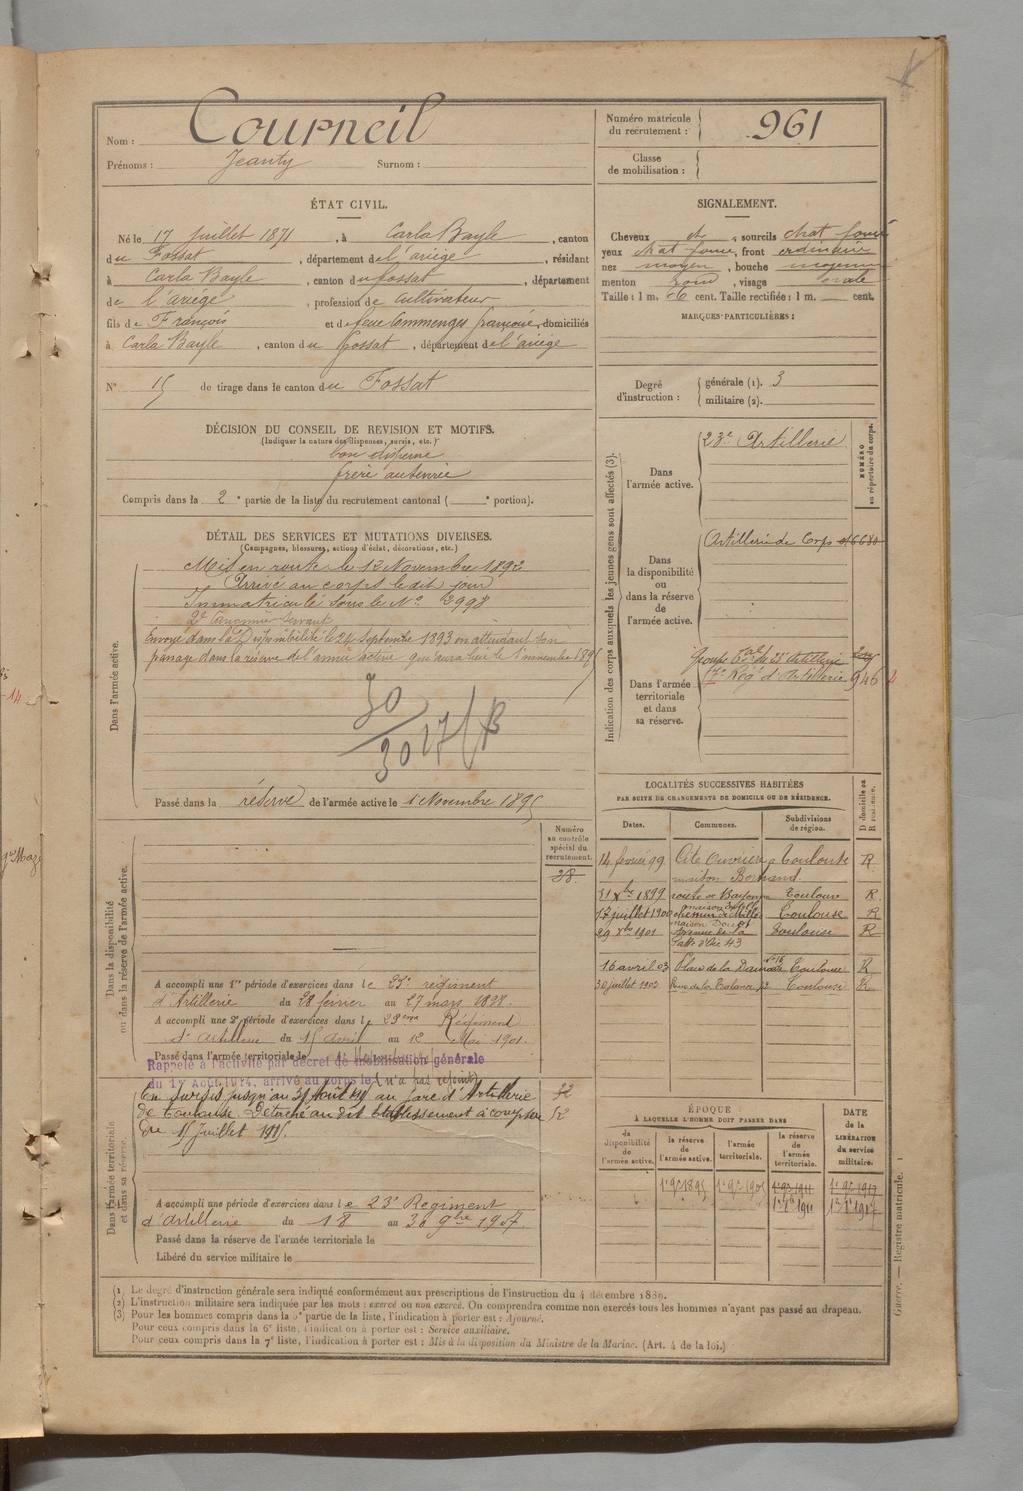 Nom : Courneil
Prénoms : Jeanty Surnom :
Numéro matricule du recrutement : 961
Classe de mobilisation :
ÉTAT CIVIL.
Né le 17 juillet 1871, à Carla Bayle, canton
du Fossat, département de l'ariège, résidant
à Carla Bayle, canton du fossat, département
de l'ariège, profession de cultivateur
fils de François et de feue Commenges françoise, domiciliés
à Carla Bayle, canton du fossat, département de l'ariège
N° 15 de tirage dans le canton du Fossat
DÉCISION DU CONSEIL DE REVISION ET MOTIFS.
(Indiquer la nature des dispenses, sursis, etc.)
bon dispensé
frère
Compris dans la 2e partie de la liste du recrutement cantonal ( e portion).
DÉTAIL DES SERVICES ET MUTATIONS DIVERSES.
(Campagnes, blessures, actions d'éclat, décorations, etc.)
Dans l'armée active.
Mis en route le 12 Novembre 1892
Arrivé au corps le dit jour
Immatriculé sous le No 3998
2e Canonnier servant
Envoyé dans la Disponibilité le 24 septembre 1893 en attendant son
passage dans la réserve de l'armée active qui aura lieu le 1 novembre 1895
30
3027/B
Passé dans la réserve de l'armée active le 1 Novembre 1895
Numéro au contrôle spécial du recrutement.
28
Dans la disponibilité ou dans la réserve de l'armée active.
A accompli une 1re période d'exercices dans le 23e régiment
d'Artillerie du 28 février au 27 mars 1898.
A accompli une 2e période d'exercices dans le 23eme Régiment
d'Artillerie du 15 avril au 12 Mai 1901.
Passé dans l'armée territoriale le
Rappelé à l'activité par décret de mobilisation générale
du 1er Août 1914, arrivé au corps le (n'a pas rejoint)
En sursis jusqu'au 31 Août 1915 au parc d'Artillerie 52
de Toulouse. Détaché au dit Etablissement à compter 52
du 15 Juillet 1915.
Dans l'armée territoriale et dans sa réserve.
A accompli une période d'exercices dans le 23e Régiment
d'Artillerie du 18 au 30 9bre 1907.
Passé dans la réserve de l'armée territoriale le
Libéré du service militaire le
SIGNALEMENT.
Cheveux ch, sourcils chat foncé
yeux chat foncé, front ordinaire
nez moyen, bouche moyenne
menton rond, visage ovale
Taille : 1 m. 66 cent. Taille rectifiée : 1 m. cent.
MARQUES PARTICULIÈRES :
Degré d'instruction : générale (1). 3
militaire (2).
Indication des corps auxquels les jeunes gens sont affectés (3).
NUMÉRO au répertoire du corps.
Dans l'armée active.
23e Artillerie
Dans la disponibilité ou dans la réserve de l'armée active.
Artillerie de Corps 6680
Dans l'armée territoriale et dans sa réserve.
Groupe Tal du 23e Artillerie
Reg d'Artillerie 946
LOCALITÉS SUCCESSIVES HABITÉES
PAR SUITE DE CHANGEMENTS DE DOMICILE OU DE RÉSIDENCE.
Dates. Communes. Subdivisions de région. D domicile ou R résidence.
14 février 99 Cité Ouvrière Toulouse R
maison Bertrand.
31 Xbre 1899 route de Bayonne Toulouse R
17 juillet 1900 chemin de Toulouse R
29 Xbre 1901 avenue de la Toulouse R
Patte d'Oie 43
16 avril 03 Place de la Daurade n° 15 Toulouse R
30 juillet 1903 Rue de la Balance 12 Toulouse R
ÉPOQUE
À LAQUELLE L'HOMME DOIT PASSER DANS
DATE de la LIBÉRATION du service militaire.
la disponibilité de l'armée active. la réserve de l'armée active. l'armée territoriale. la réserve de l'armée territoriale.
1 9bre 1895 1 9bre 1905 1 9bre 1911 1 9bre 1917
1 8bre 1911 1 8bre 1917
(1) Le degré d'instruction générale sera indiqué conformément aux prescriptions de l'instruction du 4 décembre 1889.
(2) L'instruction militaire sera indiquée par les mots : exercé ou non exercé. On comprendra comme non exercés tous les hommes n'ayant pas passé au drapeau.
(3) Pour les hommes compris dans la 5e partie de la liste, l'indication à porter est : Ajourné.
Pour ceux compris dans la 6e liste, l'indication à porter est : Service auxiliaire.
Pour ceux compris dans la 7e liste, l'indication à porter est : Mis à la disposition du Ministre de la Marine. (Art. 4 de la loi.)
Guerre. — Registre matricule. 1